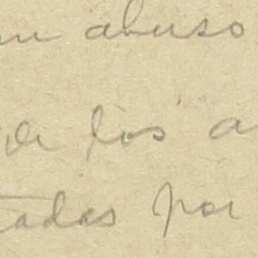 un abuso
de los a
tadas por